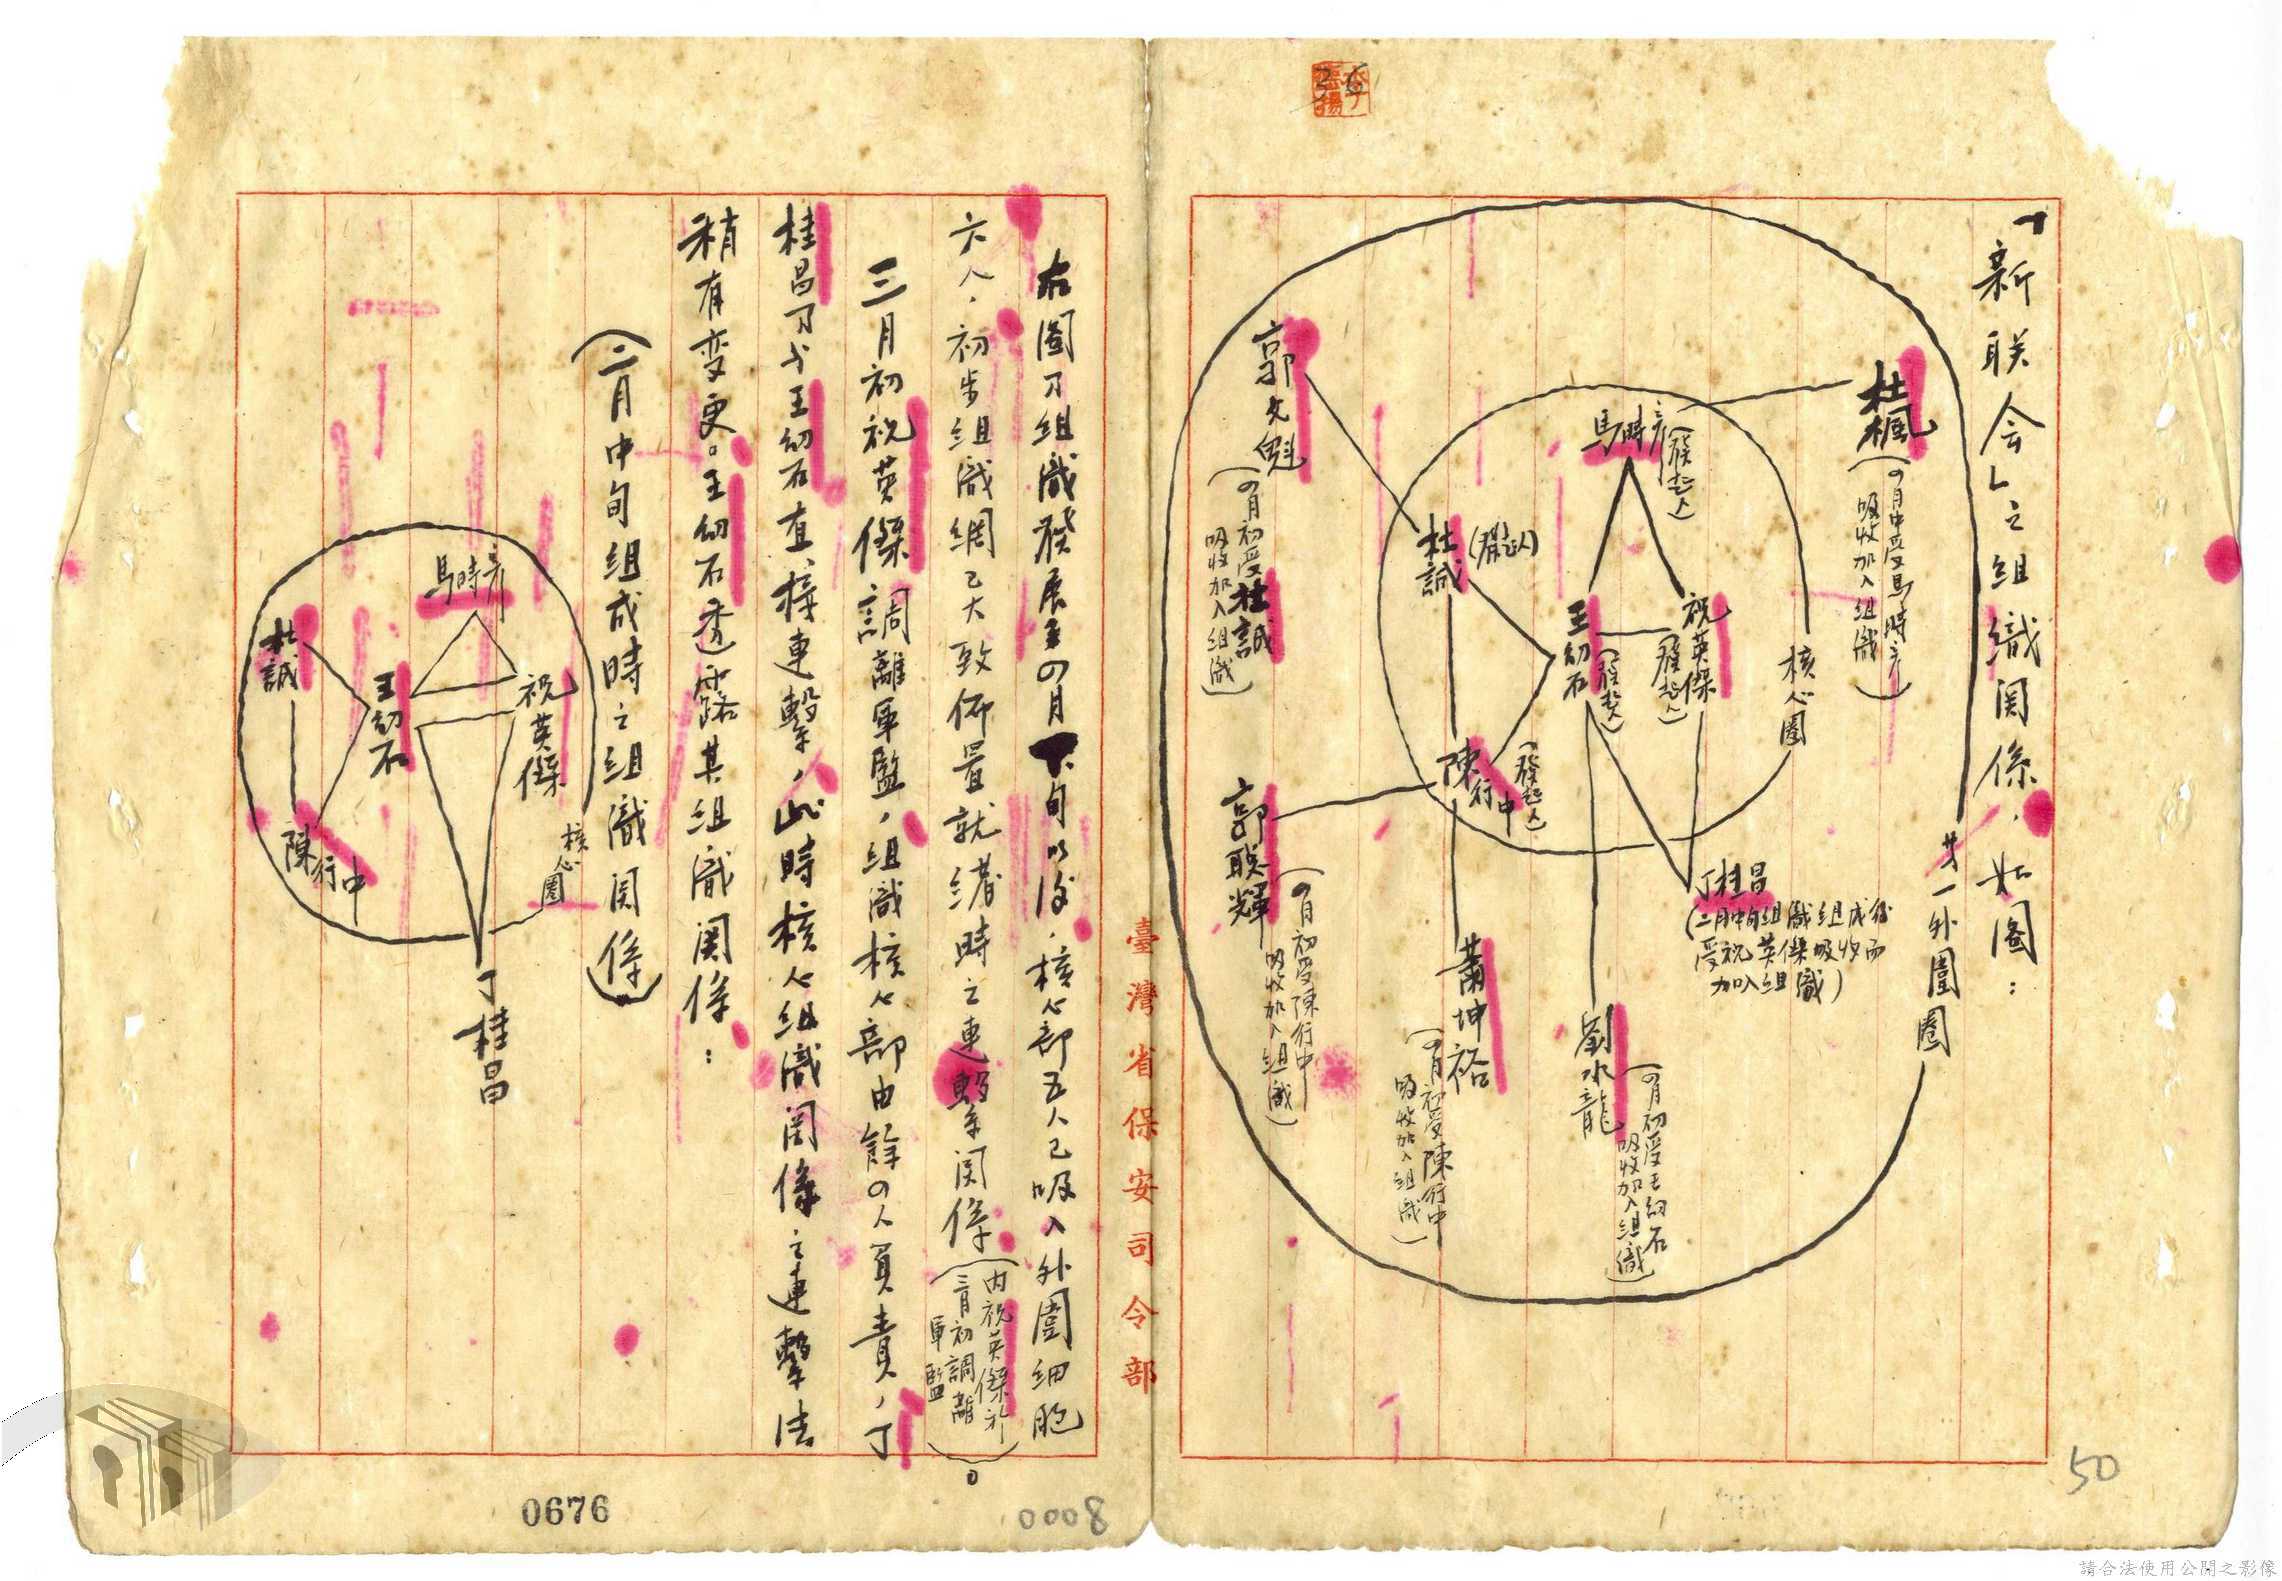 「新联会」之組織関係，如图：
杜楓
(四月中受馬時彦
吸收加入組織)
廿一外圍圈
核心圈
馬時彦
(發起人)
祝英傑
(發起人)
王幼石
(發起人)
杜誠
(發起人)
陳行中
(發起人)
丁桂昌
(二月中旬組織組成後
受祝英傑吸收而
加入組織)
郭文魁
(四月初受杜誠
吸收加入組織)
郭联輝
(四月初受陳行中
吸收加入組織)
蕭坤裕
(四月初受陳行中
吸收加入組織)
劉水龍
(四月初受王幼石
吸收加入組織)
臺灣省保安司令部
右图乃組織發展至四月下旬以後，核心部五人已吸入外圍細胞
六人，初步組織網已大致佈置就緒時之連繫関係
(内祝英傑於
三月初調離
軍監)。
三月初祝英傑調離軍監，組織核心部由餘四人負責，丁
桂昌乃与王幼石直接連繫，此時核心組織関係之連繫法
稍有变更。王幼石透露其組織関係：
(二月中旬組成時之組織関係)
馬時彦
杜誠
王幼石
祝英傑
陳行中
核心圈
丁桂昌
36
50
0676
0008
請合法使用公開之影像